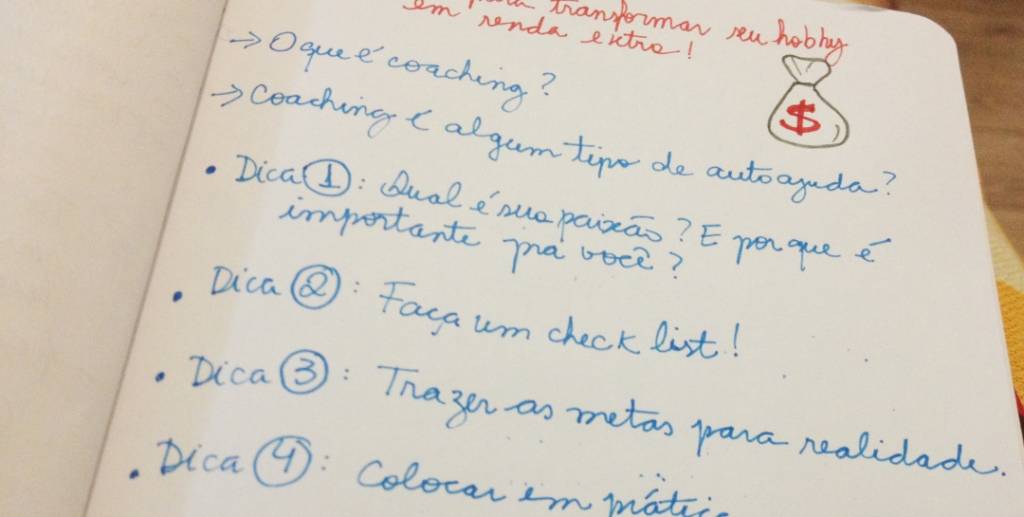 para transformar seu hobby
em renda extra!
→ O que é coaching?
→ Coaching é algum tipo de autoajuda?
• Dica 1: Qual é sua paixão? E por que é
importante pra você?
• Dica 2: Faça um check list!
• Dica 3: Trazer as metas para realidade.
• Dica 4: Colocar em
$